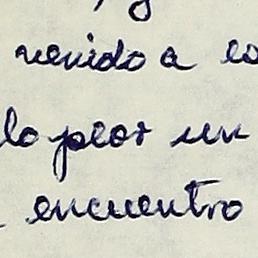 venido a
lo peor un
encuentro